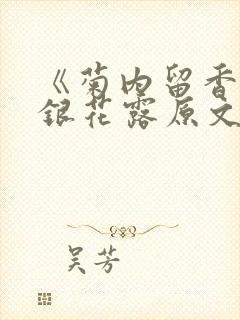 《菊内留香
銀花露原文
吴芳